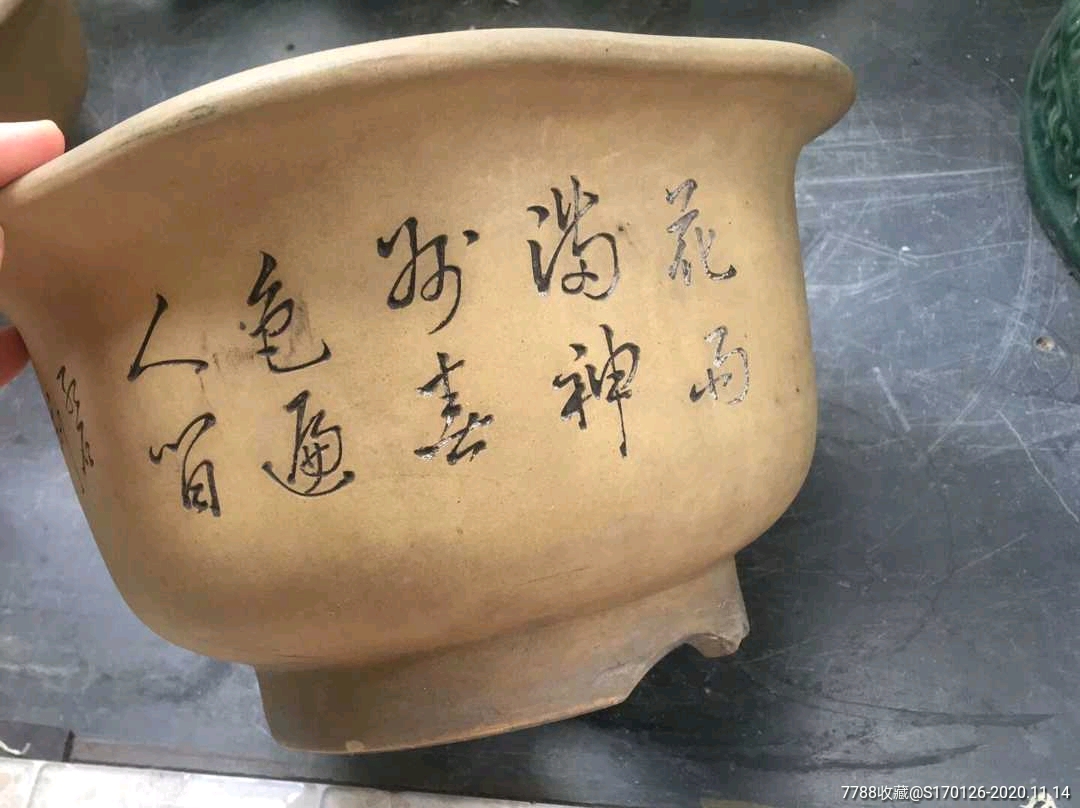 花雨
满神
州春
色遍
人间
7788收藏@S170126-2020.11.14